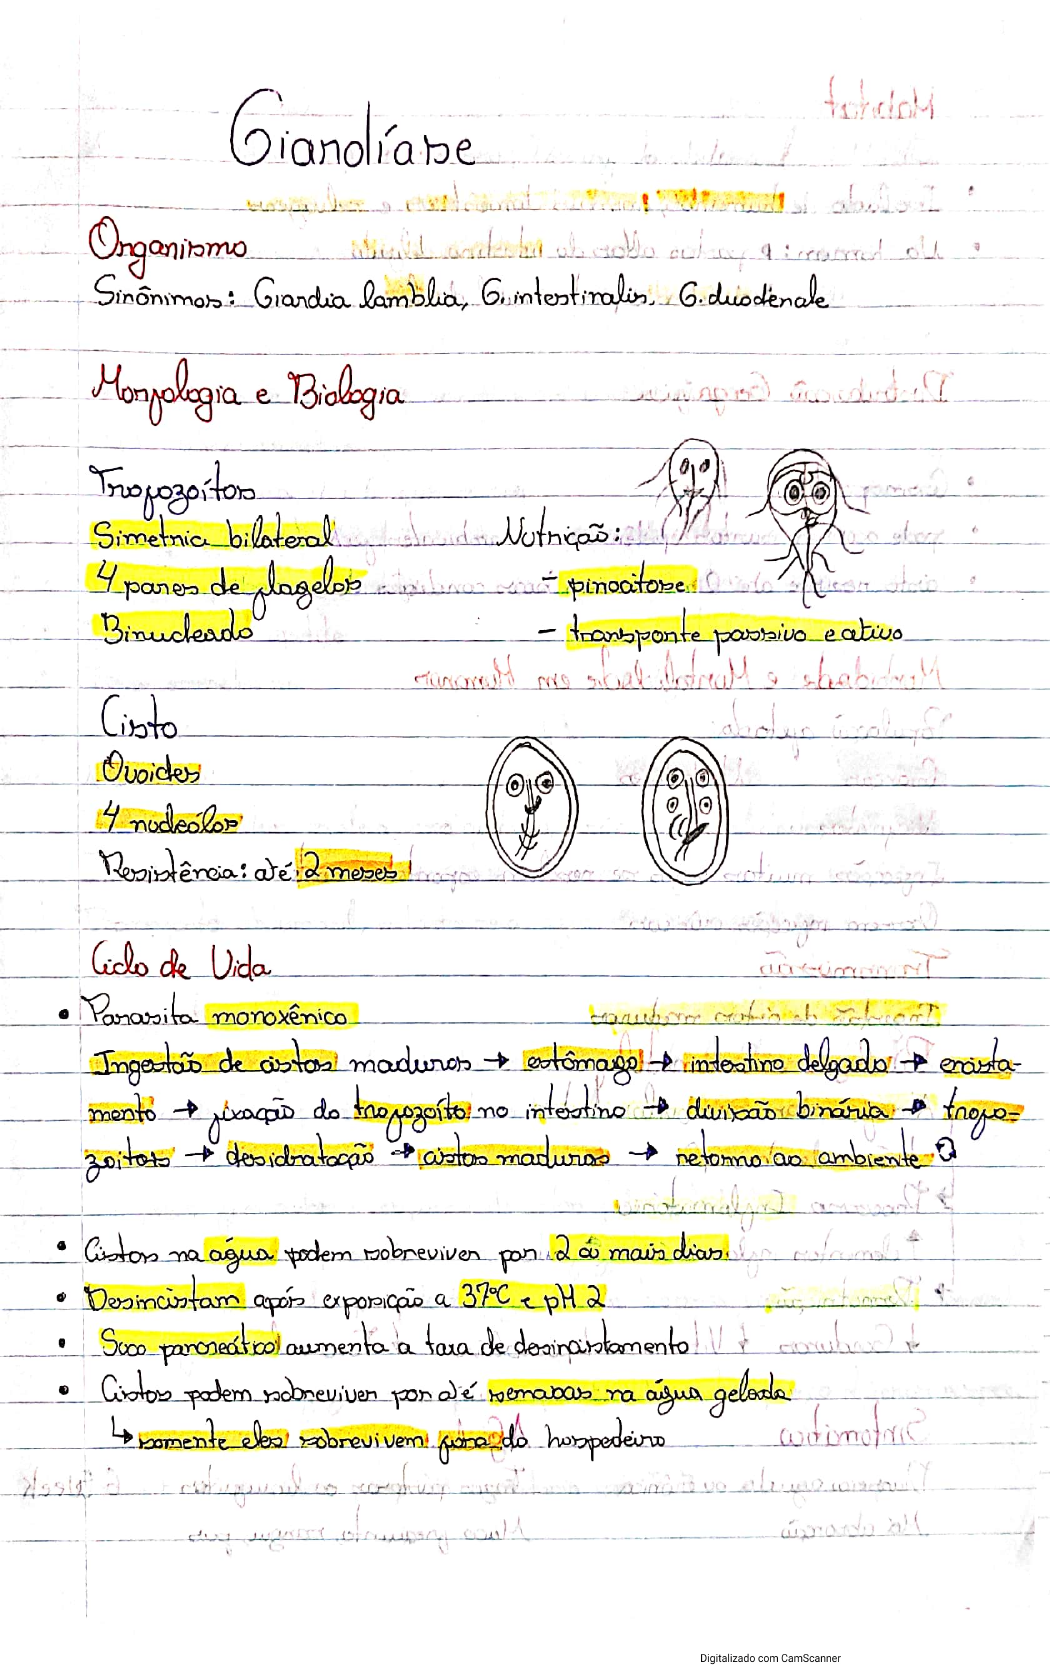 Giardíase
Organismo
Sinônimos: Giardia lamblia, G. intestinalis, G. duodenale
Morfologia e Biologia
Trofozoítos
Simetria bilateral
4 pares de flagelos
Binucleado
Nutrição:
- pinocitose
- transporte passivo e ativo
Cisto
Ovoides
4 nucleólos
Resistência: até 2 meses
Ciclo de Vida
• Parasita monoxênico
Ingestão de cistos maduros → estômago → intestino delgado → encista-
mento → fixação do trofozoíto no intestino → divisão binária → trofo-
zoítos → desidratação → cistos maduros → retorno ao ambiente
• Cistos na água podem sobreviver por 2 ou mais dias.
• Desincistam após exposição a 37°C e pH 2
• Suco pancreático aumenta a taxa de desincistamento
• Cistos podem sobreviver por até semanas na água gelada
↳ somente eles sobrevivem fora do hospedeiro
Digitalizado com CamScanner